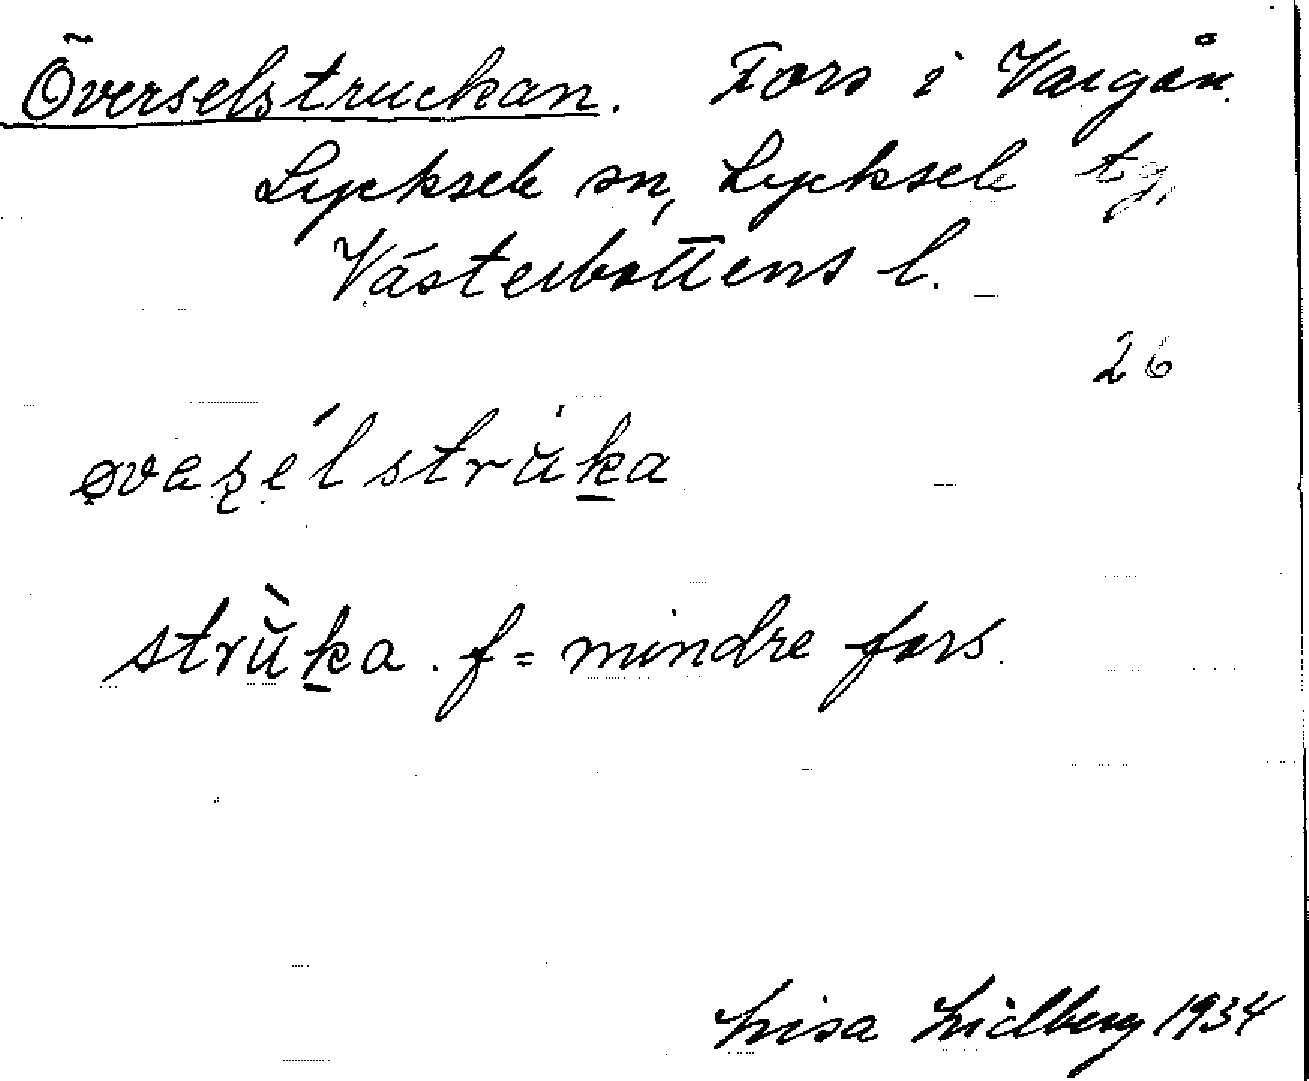 Överselstruckan. Fors i Vargån.
Lycksele sn, Lycksele tg,
Västerbottens l.
26
strùka. f = mindre fors.
Lisa Lidberg 1934